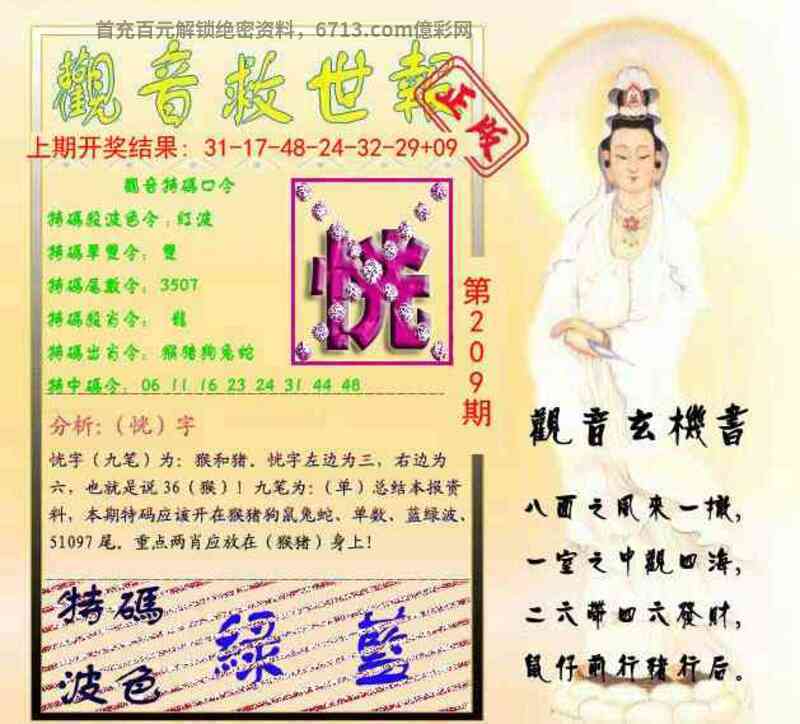 首充百元解锁绝密资料，6713.com億彩网
觀音救世報
正版
上期开奖结果：31-17-48-24-32-29+09
觀音特碼口令
特碼殺波色令：紅波
特碼單雙令：雙
特碼尾數令：3507
特碼殺肖令：龍
特碼出肖令：猴豬狗兔蛇
特中碼令：06 11 16 23 24 31 44 48
恍
第209期
分析:（恍）字
恍字（九笔）为：猴和猪．恍字左边为三，右边为
六，也就是说36（猴）！九笔为：（单）总结本报资
料，本期特码应该开在猴猪狗鼠兔蛇、单数、蓝绿波、
51097尾．重点两肖应放在（猴猪）身上！
特碼
波色
綠 藍
觀音玄機書
八面之風來一撤，
一室之中觀四海，
二六帶四六發財，
鼠仔前行豬行后。